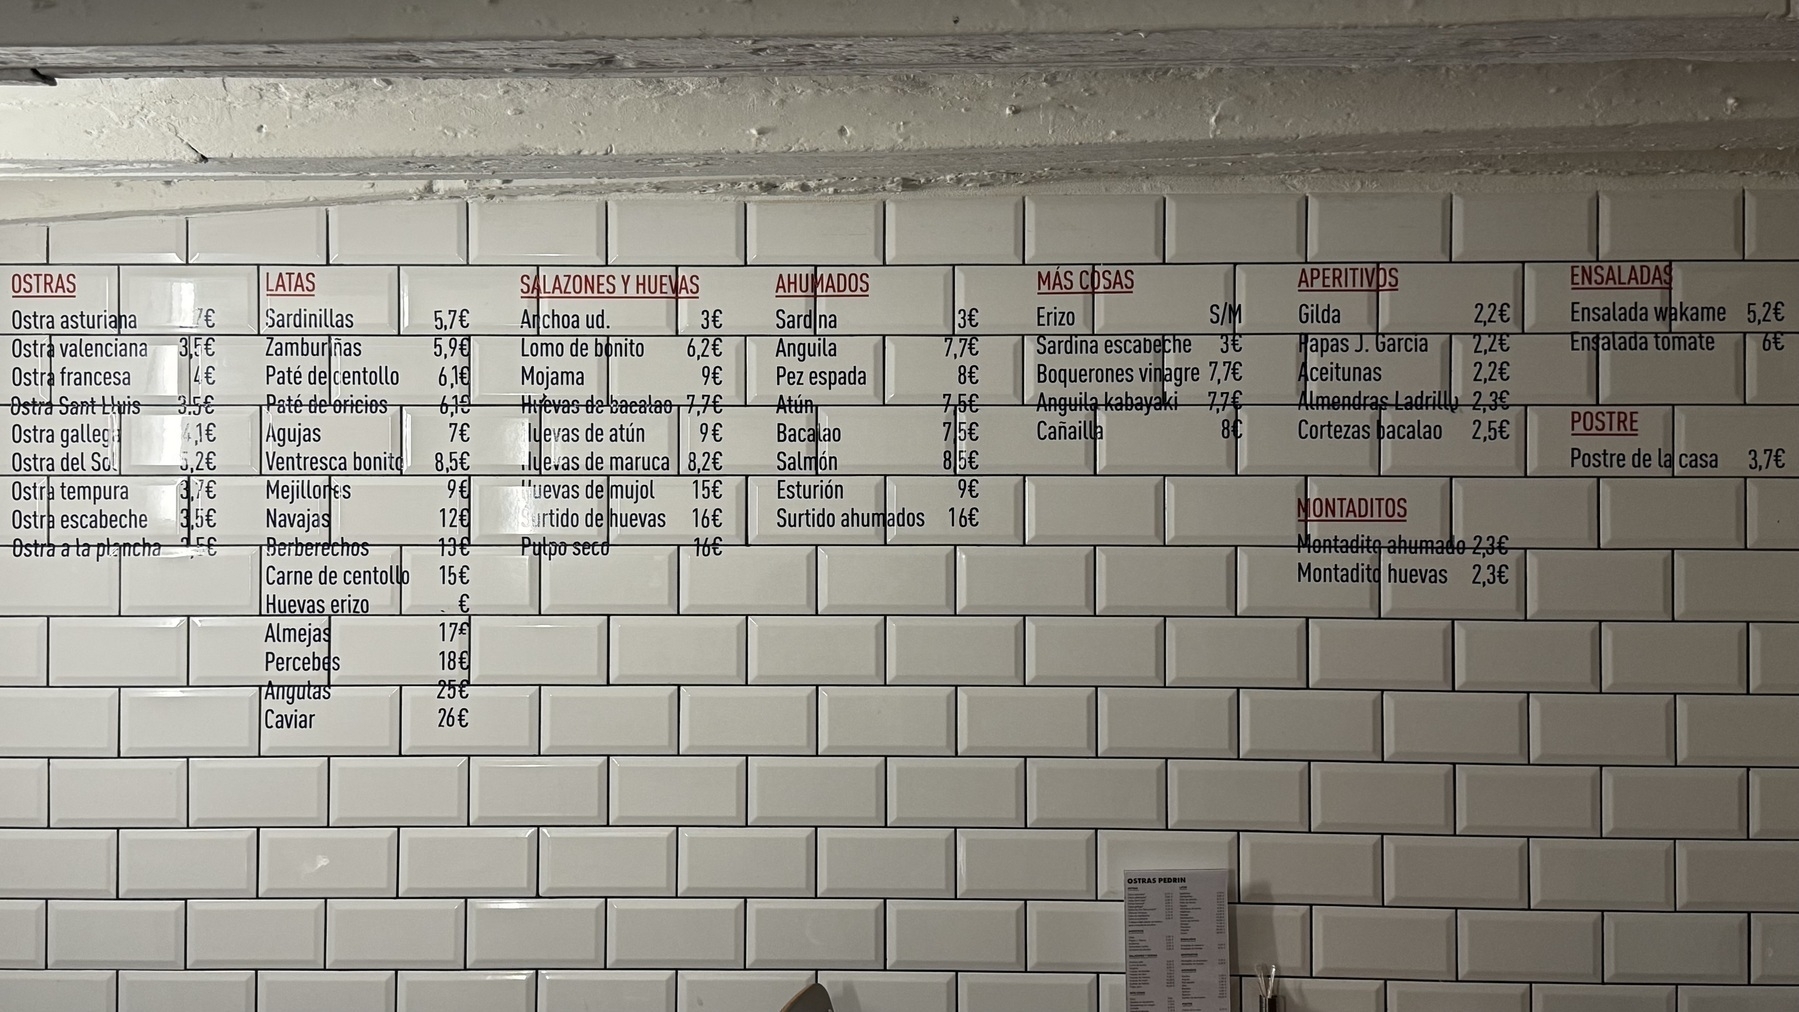 OSTRAS
Ostra asturiana 7€
Ostra valenciana 3,5€
Ostra francesa 4€
Ostra Sant Lluis 3,5€
Ostra gallega 4,1€
Ostra del Sol 5,2€
Ostra tempura 3,7€
Ostra escabeche 3,5€
Ostra a la plancha 3,5€
LATAS
Sardinillas 5,7€
Zamburiñas 5,9€
Paté de centollo 6,1€
Paté de oricios 6,1€
Agujas 7€
Ventresca bonito 8,5€
Mejillones 9€
Navajas 12€
Berberechos 13€
Carne de centollo 15€
Huevas erizo €
Almejas 17€
Percebes 18€
Angulas 25€
Caviar 26€
SALAZONES Y HUEVAS
Anchoa ud. 3€
Lomo de bonito 6,2€
Mojama 9€
Huevas de bacalao 7,7€
Huevas de atún 9€
Huevas de maruca 8,2€
Huevas de mujol 15€
Surtido de huevas 16€
Pulpo seco 16€
AHUMADOS
Sardina 3€
Anguila 7,7€
Pez espada 8€
Atún 7,5€
Bacalao 7,5€
Salmón 8,5€
Esturión 9€
Surtido ahumados 16€
MÁS COSAS
Erizo S/M
Sardina escabeche 3€
Boquerones vinagre 7,7€
Anguila kabayaki 7,7€
Cañailla 8€
APERITIVOS
Gilda 2,2€
Papas J. Garcia 2,2€
Aceitunas 2,2€
Almendras Ladrillo 2,3€
Cortezas bacalao 2,5€
MONTADITOS
Montadito ahumado 2,3€
Montadito huevas 2,3€
ENSALADAS
Ensalada wakame 5,2€
Ensalada tomate 6€
POSTRE
Postre de la casa 3,7€
OSTRAS PEDRIN